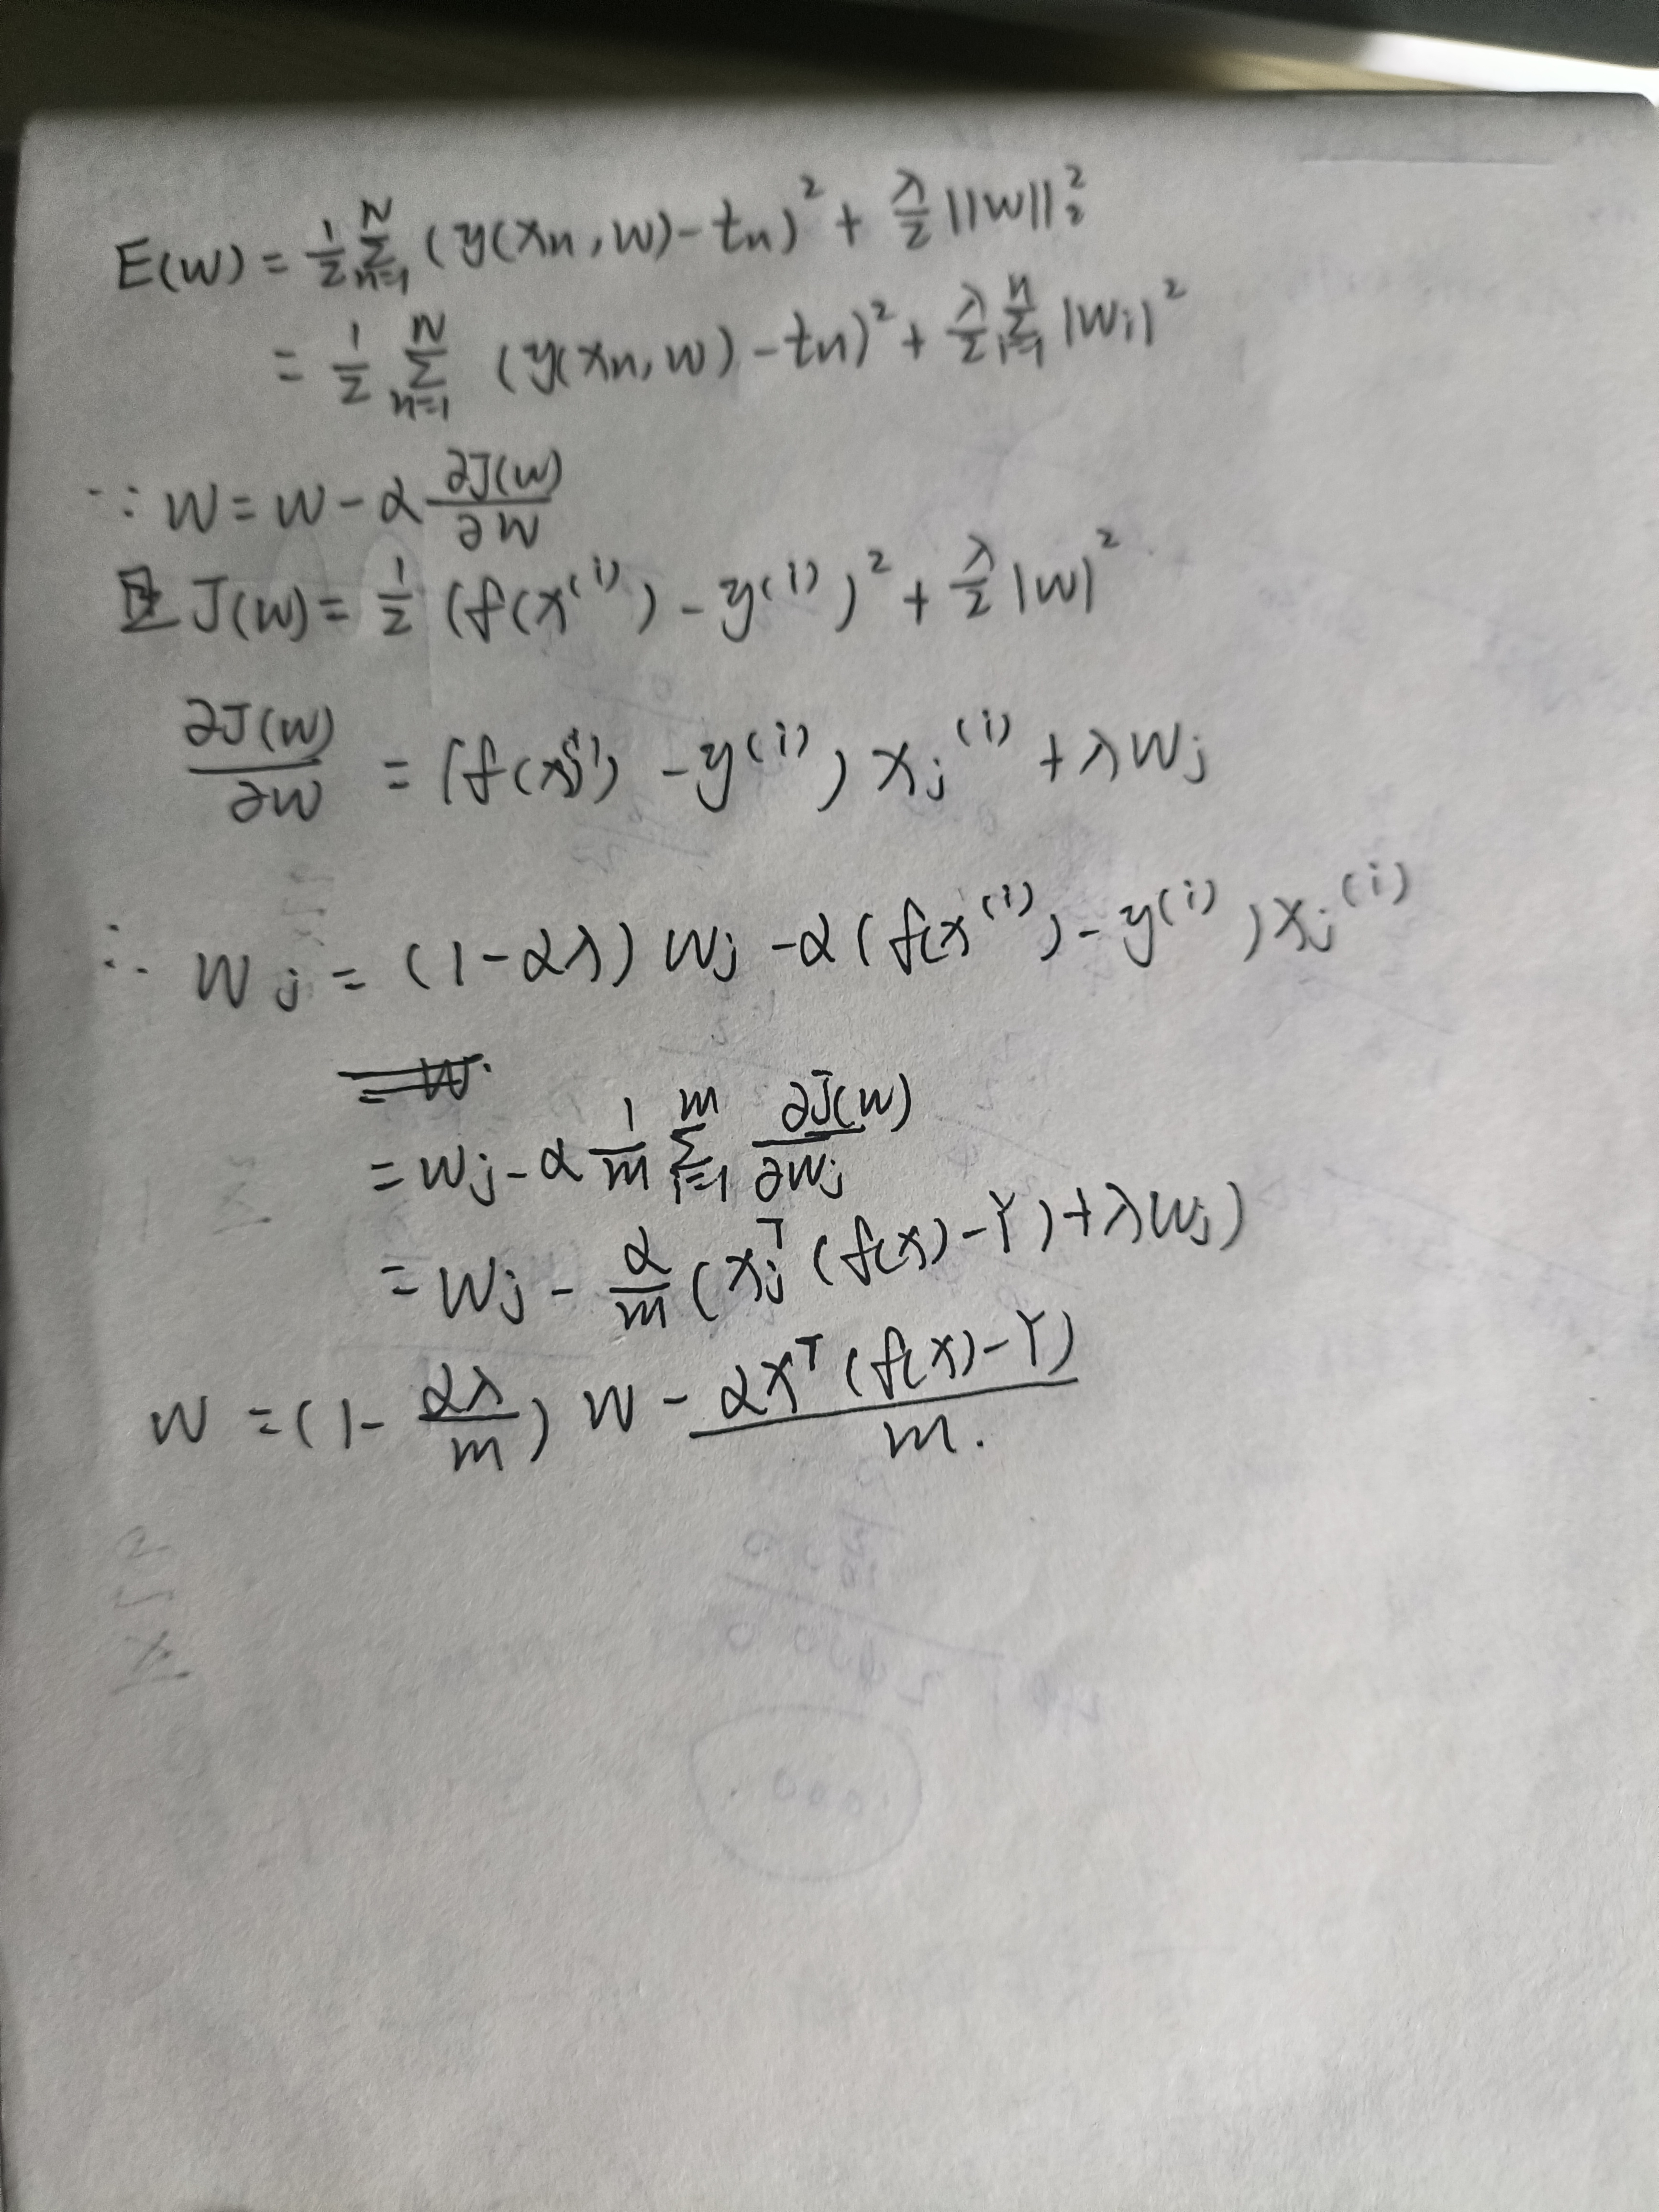 E(w) = 1/2 Σ_{n=1}^{N} (y(xn, w) - tn)² + λ/2 ||w||₂²
= 1/2 Σ_{n=1}^{N} (y(xn, w) - tn)² + λ/2 Σ_{i=1}^{n} |wi|²
∵ w = w - α ∂J(w)/∂w
且 J(w) = 1/2 (f(x^(i)) - y^(i))² + λ/2 |w|²
∂J(w)/∂w = (f(x^(i)) - y^(i)) xj^(i) + λwj
∴ wj = (1 - αλ) wj - α (f(x^(i)) - y^(i)) xj^(i)
= wj - α 1/m Σ_{i=1}^{m} ∂J(w)/∂wj
= wj - α/m (xj^T (f(x) - Y) + λwj)
w = (1 - αλ/m) w - αX^T (f(x) - Y)/m.